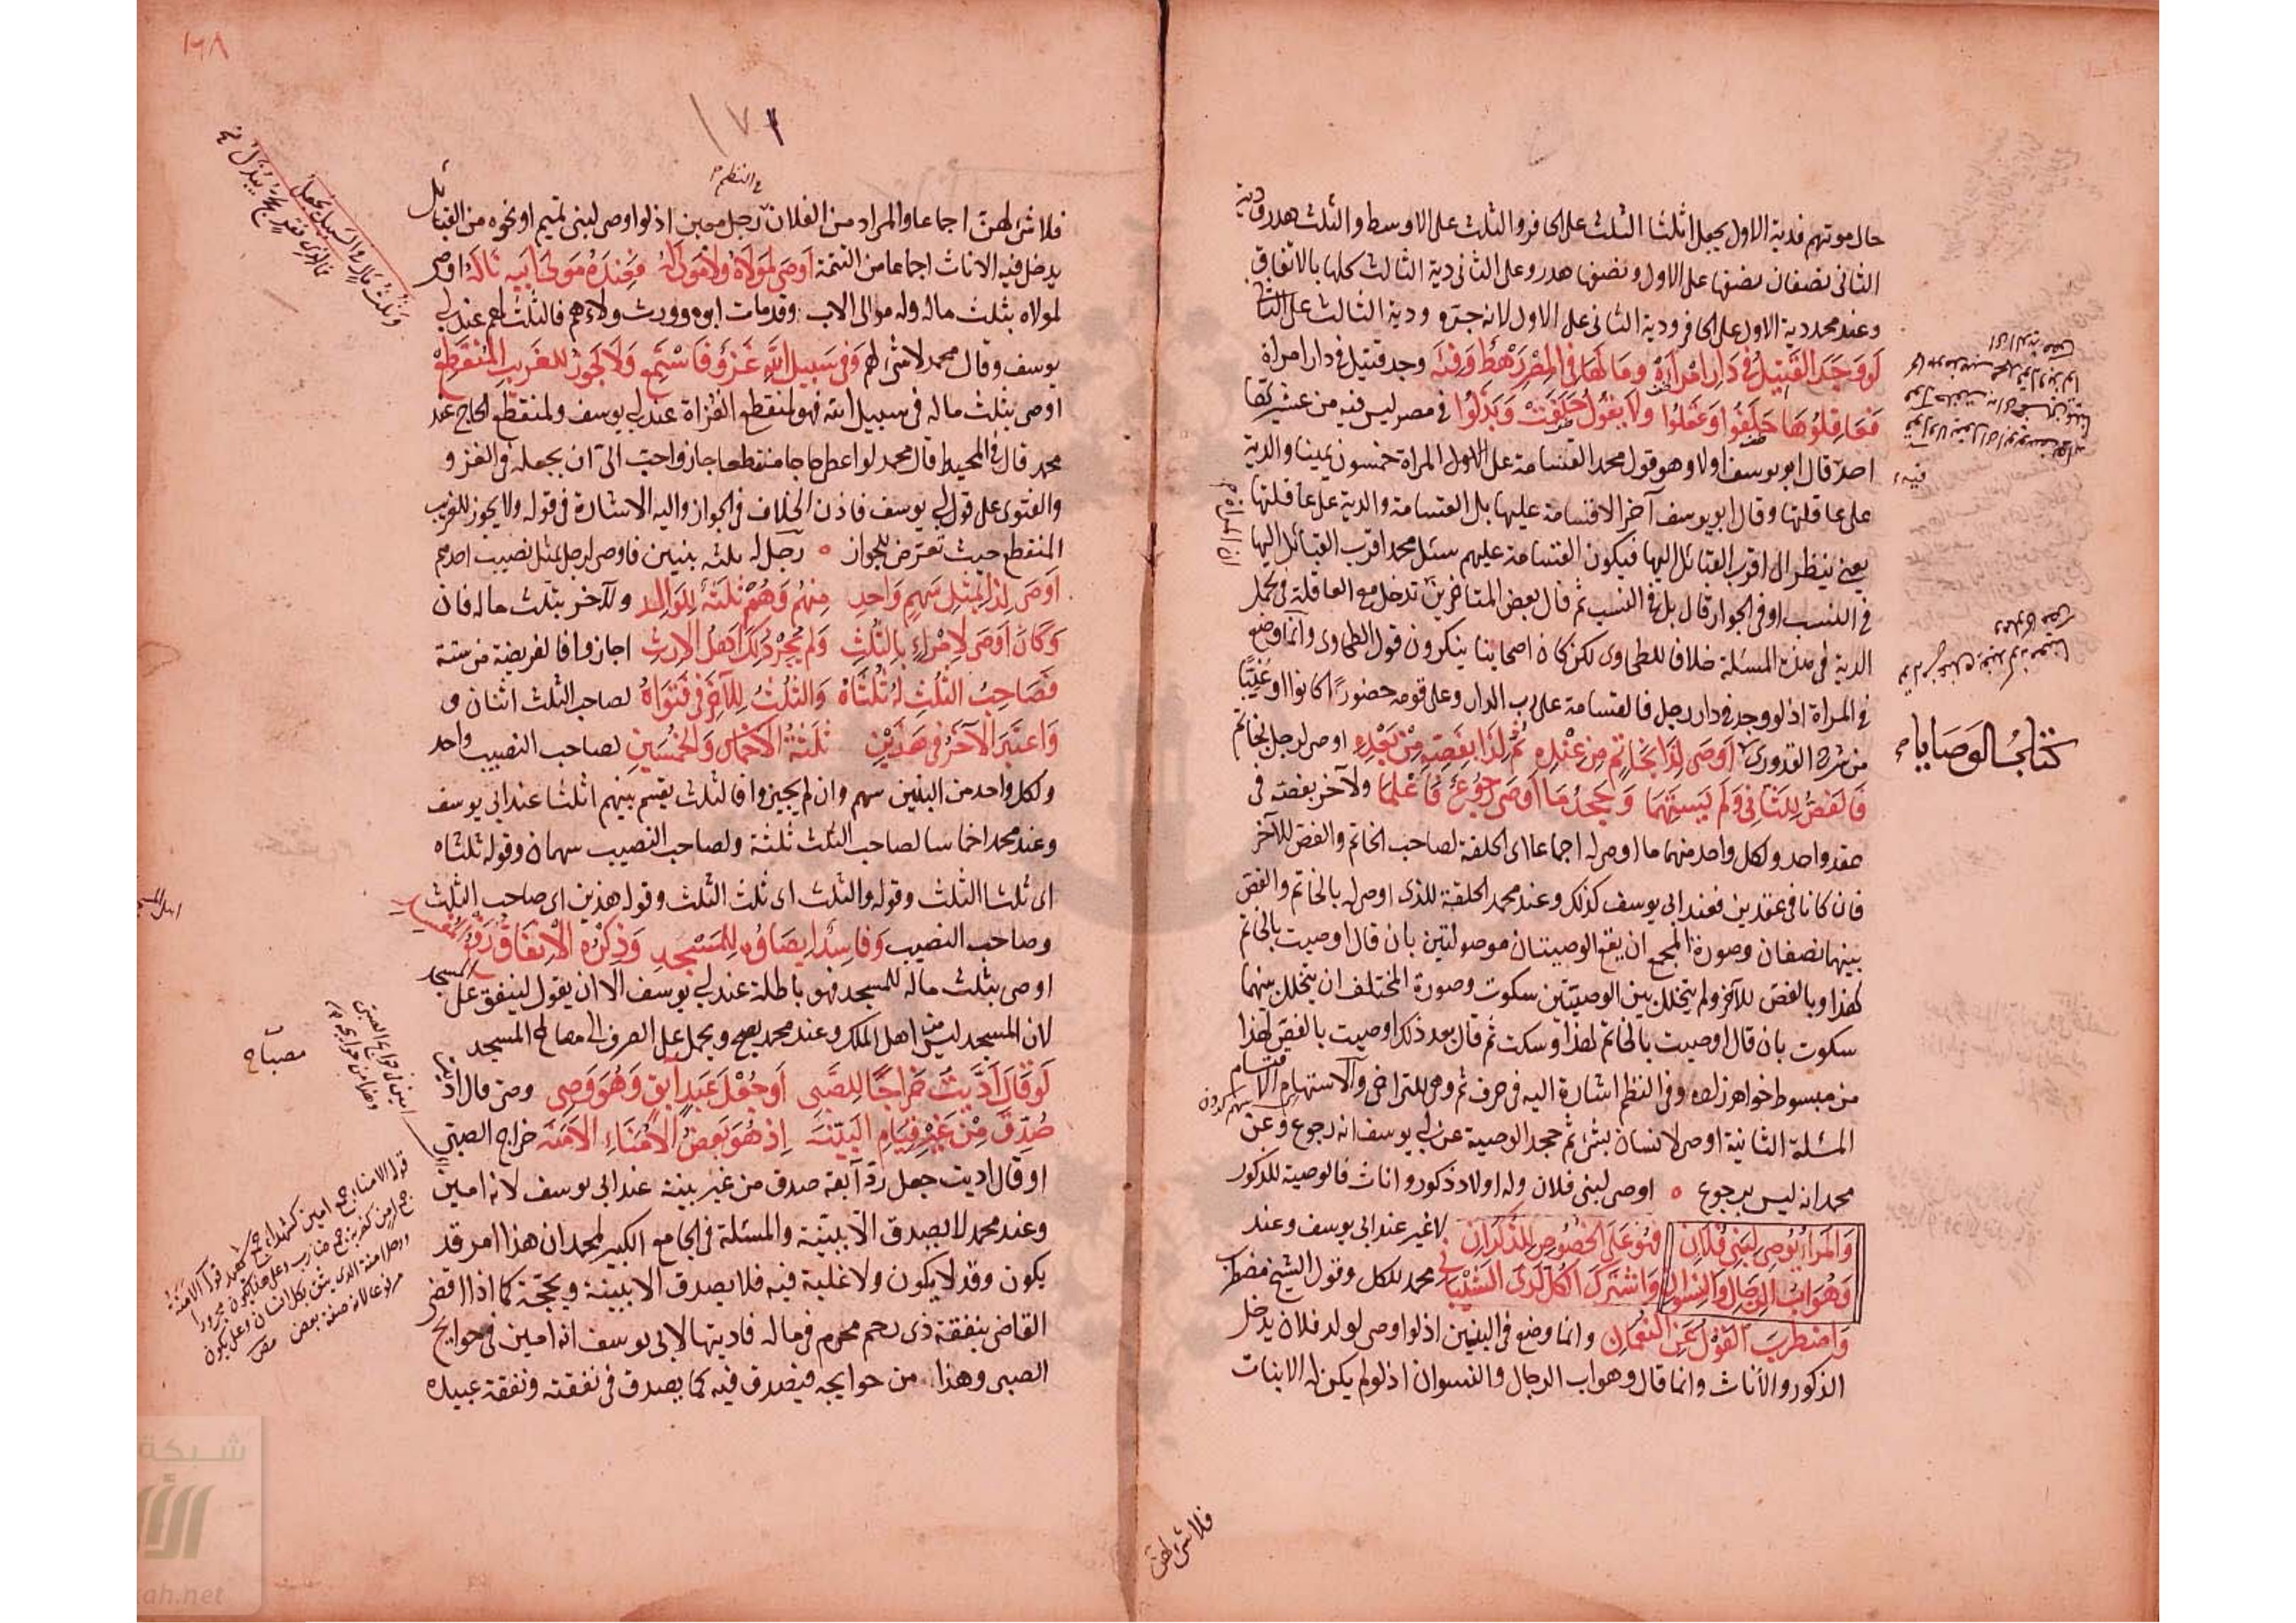 حال موتهم فدية الاول يجعل اثلثا الثلث على الحافر والثلث على الاوسط والثلث هدر ودية
الثانى نصفان نصفها على الاول ونصفها هدر وعلى الثانى دية الثالث كلها بالاتفاق
وعند محمد دية الاول على الحافر ودية الثانى على الاول لانه جره ودية الثالث على الثانى
لو وجد القتيل فى دار امراة وما لها فى المصر رهط وفئه وجد قتيل فى دار امراة
فعاقلوها حلفوا وعقلوا ولا يقول حلفت وبذلوا فى مصر ليس فيه من عشيرتها
احد قال ابو يوسف اولا وهو قول محمد القسامة على المراة خمسون يمينا والدية
على عاقلتها وقال ابو يوسف آخر الا قسامة عليها بل القسامة والدية على عاقلتها
يعنى ينظر الى اقرب القبائل اليها فيكون القسامة عليهم سئل محمد اقرب القبائل اليها
فى النسب او فى الجوار قال بل فى النسب ثم قال بعض المتاخرين تدخل مع العاقلة فى تحمل
الدية فى هذه المسئلة خلافا للطحاوى لكن كان اصحابنا ينكرون قول الطحاوى وانما وضع
فى المراة اذ لو وجد فى دار رجل فالقسامة على رب الدار وعلى قومه حضورا كانوا او غيبا
كتاب الوصايا
من شرح القدورى اوصى لذا بخاتم من عنده ثم لذا بفصه من بعده اوصى لرجل بخاتم
فالفص للثانى ولم يستهما وجحد ما اوصى رجوع فاعلما ولآخر بفصه فى
عقد واحد ولكل واحد منهما ما اوصى له اجماعا اى الحلقة لصاحب الخاتم والفص للآخر
فان كانا فى عقدين فعند ابى يوسف كذلك وعند محمد الحلقة للذى اوصى له بالخاتم والفص
بينهما نصفان وصورة المجمع ان يقع الوصيتان موصولتين بان قال اوصيت بالخاتم
لهذا وبالفص للآخر ولم يتخلل بين الوصيتين سكوت وصورة المختلف ان يتخلل بينهما
سكوت بان قال اوصيت بالخاتم لهذا وسكت ثم قال بعد ذلك اوصيت بالفص لهذا
من مبسوط خواهر زاده وفى النظم اشارة اليه فى حرف ثم وهى للتراخى والاستهام الاقتسام
المسئلة الثانية اوصى لانسان بشئ ثم جحد الوصية عن ابى يوسف انه رجوع وعن
محمد انه ليس برجوع اوصى لبنى فلان وله اولاد ذكور واناث فالوصية للذكور
والمرأ يوصى لبنى فلان فهو على الخصوص للذكران لا غير عند ابى يوسف وعند
وهو اب الرجال والنسوان واشترك الكل لدى الشيبانى محمد للكل وقول الشيخ مضطرب
واضطرب القول عن النعمان وانما وضع فى البنين اذ لو اوصى لولد فلان يدخل
الذكور والاناث وانما قال وهو اب الرجال والنسوان اذ لو لم يكن له الا بنات
فلا شئ لهن
١٦٨
١٧١
فى النظم
فلا شئ لهن اجماعا والمراد من الفلان رجل معين اذ لو اوصى لبنى تميم او نحوه من القبائل
يدخل فيه الاناث اجماعا من التتمة اوصى لمولاه ولا مولى له فعنده مولى ابيه ناله اوصى
لمولاه بثلث ماله وله موالى الاب وقد مات ابوه وورث ولاءهم فالثلث لهم عند ابى
يوسف وقال محمد لا شئ لهم وفى سبيل الله غزو فاستمع ولا يجوز للغريب المنقطع
اوصى بثلث ماله فى سبيل الله فهو لمنقطع الغزاة عند ابى يوسف ولمنقطع الحاج عند
محمد قال فى المحيط قال محمد لو اعطى حاجا منقطعا جاز واحب الى ان يجعله فى الغزو
والفتوى على قول ابى يوسف فاذن الخلاف فى الجواز واليه الاشارة فى قوله ولا يجوز للغريب
المنقطع حيث تعرض للجواز رجل له ثلثه بنين فاوصى لرجل بمثل نصيب احدهم
اوصى لذا بمثل سهم واحد منهم وهم ثلثه للوالد وللآخر بثلث ماله فان
وكان اوصى لامرئ بالثلث ولم يجز ذلك اهل الارث اجازوا فالفريضة من ستة
فصاحب الثلث له ثلثاه والثلث للآخر فى فتواه لصاحب الثلث اثنان و
واعتبر الآخر فى هذين ثلثة الاخماس والخمسين لصاحب النصيب واحد
ولكل واحد من البنين سهم وان لم يجيزوا فالثلث يقسم بينهم اثلثا عند ابى يوسف
وعند محمد اخماسا لصاحب الثلث ثلثة ولصاحب النصيب سهمان وقوله ثلثاه
اى ثلثا الثلث وقوله والثلث اى ثلث الثلث وقوله هذين اى صاحب الثلث
وصاحب النصيب وفاسد ايصاؤه للمسجد وذكره الانفاق
اوصى بثلث ماله للمسجد فهو باطلة عند ابى يوسف الا ان يقول لينفق على المسجد
لان المسجد ليس من اهل الملك وعند محمد يصح ويحمل على الصرف الى مصالح المسجد
لو قال اديت خراجا للصبى او جعل عبد آبق وهو وصى وصى قال اديت
صدق من غير قيام البينه اذ هو بعض الامناء الامنه خراج الصبى
او قال اديت جعل رد آبقه صدق من غير بينة عند ابى يوسف لانه امين
وعند محمد لا يصدق الا ببينة والمسئلة فى الجامع الكبير لمحمد ان هذا امر قد
يكون وقد لا يكون ولا غلبة فيه فلا يصدق الا ببينة وبحجة كما اذا قضى
القاضى بنفقة ذى رحم محرم فى ماله فاديتها لابى يوسف انه امين فى حوايج
الصبى وهذا من حوايجه فيصدق فيه كما يصدق فى نفقته ونفقة عبيده
وثلث مالى فى السبيل يجعل
مصباح